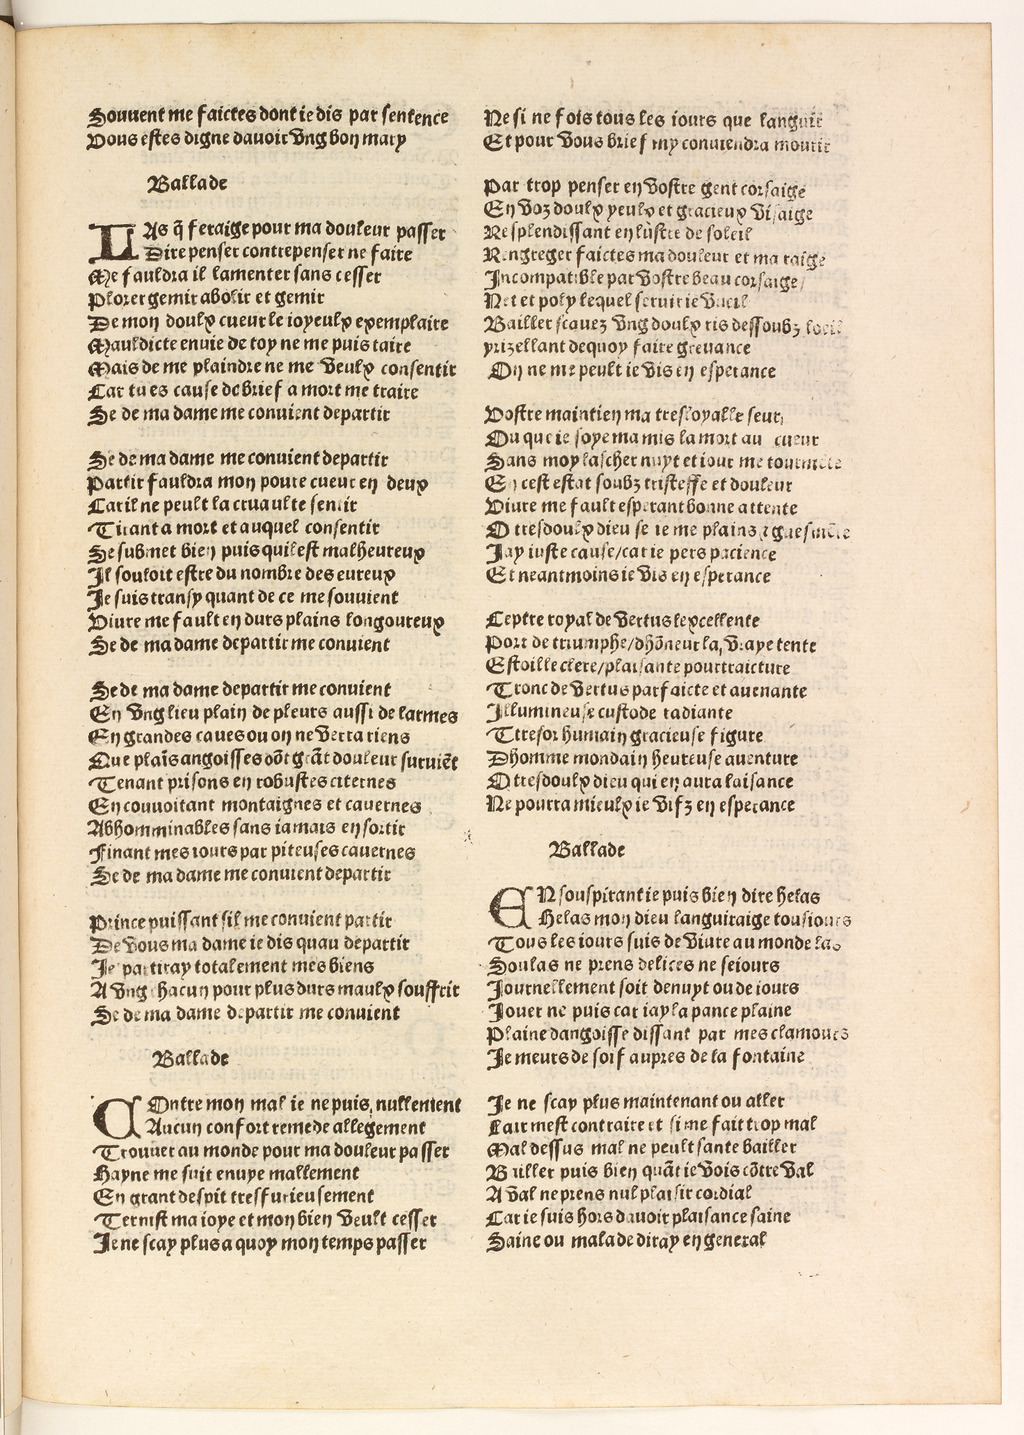 Souuent me faictes dont ie dis par sentence
Vous estes digne dauoir vng bon mary
Ballade
LAs q̄ feraige pour ma douleur passer
Dire penser contrepenser ne faire
Me fauldra il lamenter sans cesser
Plorer gemir abolir et gemir
De mon doulx cueur le ioyeulx exemplaire
Mauldicte enuie de toy ne me puis taire
Mais de me plaindre ne me veulx consentir
Car tu es cause de brief a mort me traire
Se de ma dame me conuient departir
Se de ma dame me conuient departir
Partir fauldra mon poure cueur en deux
Car il ne peult la cruaulte sentir
Tirant a mort et auquel consentir
Se submet bien puis quil est malheureux
Il souloit estre du nombre des eureux
Je suis transy quant de ce me souuient
Viure me fault en durs plains longoureux
Se de ma dame departir me conuient
Se de ma dame departir me conuient
En vng lieu plain de pleurs aussi de larmes
En grandes caues ou on ne verra riens
Que plaīs angoisses dōt grāt douleur suruiēt
Tenant prisons en robustes citernes
En conuoitant montaignes et cauernes
Abhomminables sans iamais en sortir
Finant mes iours par piteuses cauernes
Se de ma dame me conuient departir
Prince puissant sil me conuient partir
De vous ma dame ie dis quau departir
Je partiray totalement mes biens
A vng chacun pour plus durs maulx souffrir
Se de ma dame departir me conuient
Ballade
COntre mon mal ie ne puis nullement
Aucun confort remede allegement
Trouuer au monde pour ma douleur passer
Hayne me suit enuye mallement
En grant despit tresfurieusement
Ternist ma ioye et mon bien veult cesser
Je ne scay plus a quoy mon temps passer
Ne si ne fois tous les iours que languir
Et pour vous brief my conuiendra mourir
Par trop penser en vostre gent corsaige
En voz doulx yeulx et gracieux visaige
Resplendissant en lustre de soleil
Rengreger faictes ma douleur et ma raige
Incompatible par vostre beau corsaige/
Net et poly lequel seruir ie vueil
Bailler scauez vng doulx ris dessoubz loeil
yrizellant dequoy faire greuance
On ne me peult ie vis en esperance
Vostre maintien ma tresloyalle seur
Ou que ie soye ma mis la mort au cueur
Sans moy lascher nuyt et iour me tourmēte
En cest estat soubz tristesse et douleur
Viure me fault esperant bonne attente
O tresdoulx dieu se ie me plains
Jay iuste cause/car ie pers pacience
Et neantmoins ie vis en esperance
Ceptre royal de vertus lexcellente
Port de triumphe/dhōneur la vraye tente
Estoille clere/plaisante pourtraicture
Tronc de vertus parfaicte et auenante
Illumineuse custode radiante
Ttresor humain gracieuse figure
Dhomme mondain heureuse auenture
O tresdoulx dieu qui en aura laisance
Ne pourra mieulx ie vifz en esperance
Ballade
EN souspirant ie puis bien dire helas
Helas mon dieu languiraige tousiours
Tous les iours suis de viure au monde las
Soulas ne prens delices ne seiours
Journellement soit denuyt ou de iours
Jouer ne puis car iay la pance plaine
Plaine dangoisse dissant par mes clamours
Je meurs de soif aupres de la fontaine
Je ne scay plus maintenant ou aller
Lair mest contraire et si me fait trop mal
Mal dessus mal ne peult sante bailler
Bailler puis bien quāt ie vois cōtre val
A val ne prens nul plaisir cordial
Car ie suis hors dauoir plaisance saine
Saine ou malade diray en general